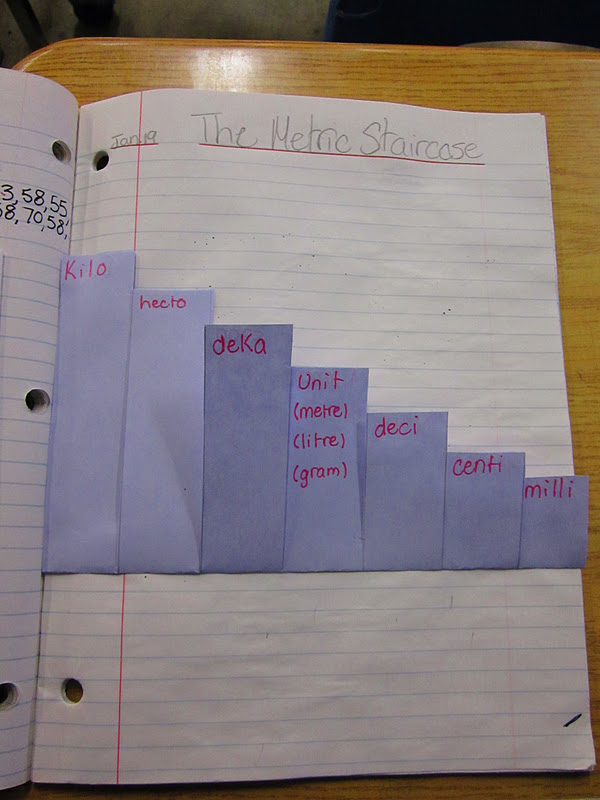 Jan 19
The Metric Staircase
3, 58, 55
58, 70, 58,
Kilo
hecto
deKa
Unit
(metre)
(litre)
(gram)
deci
centi
milli